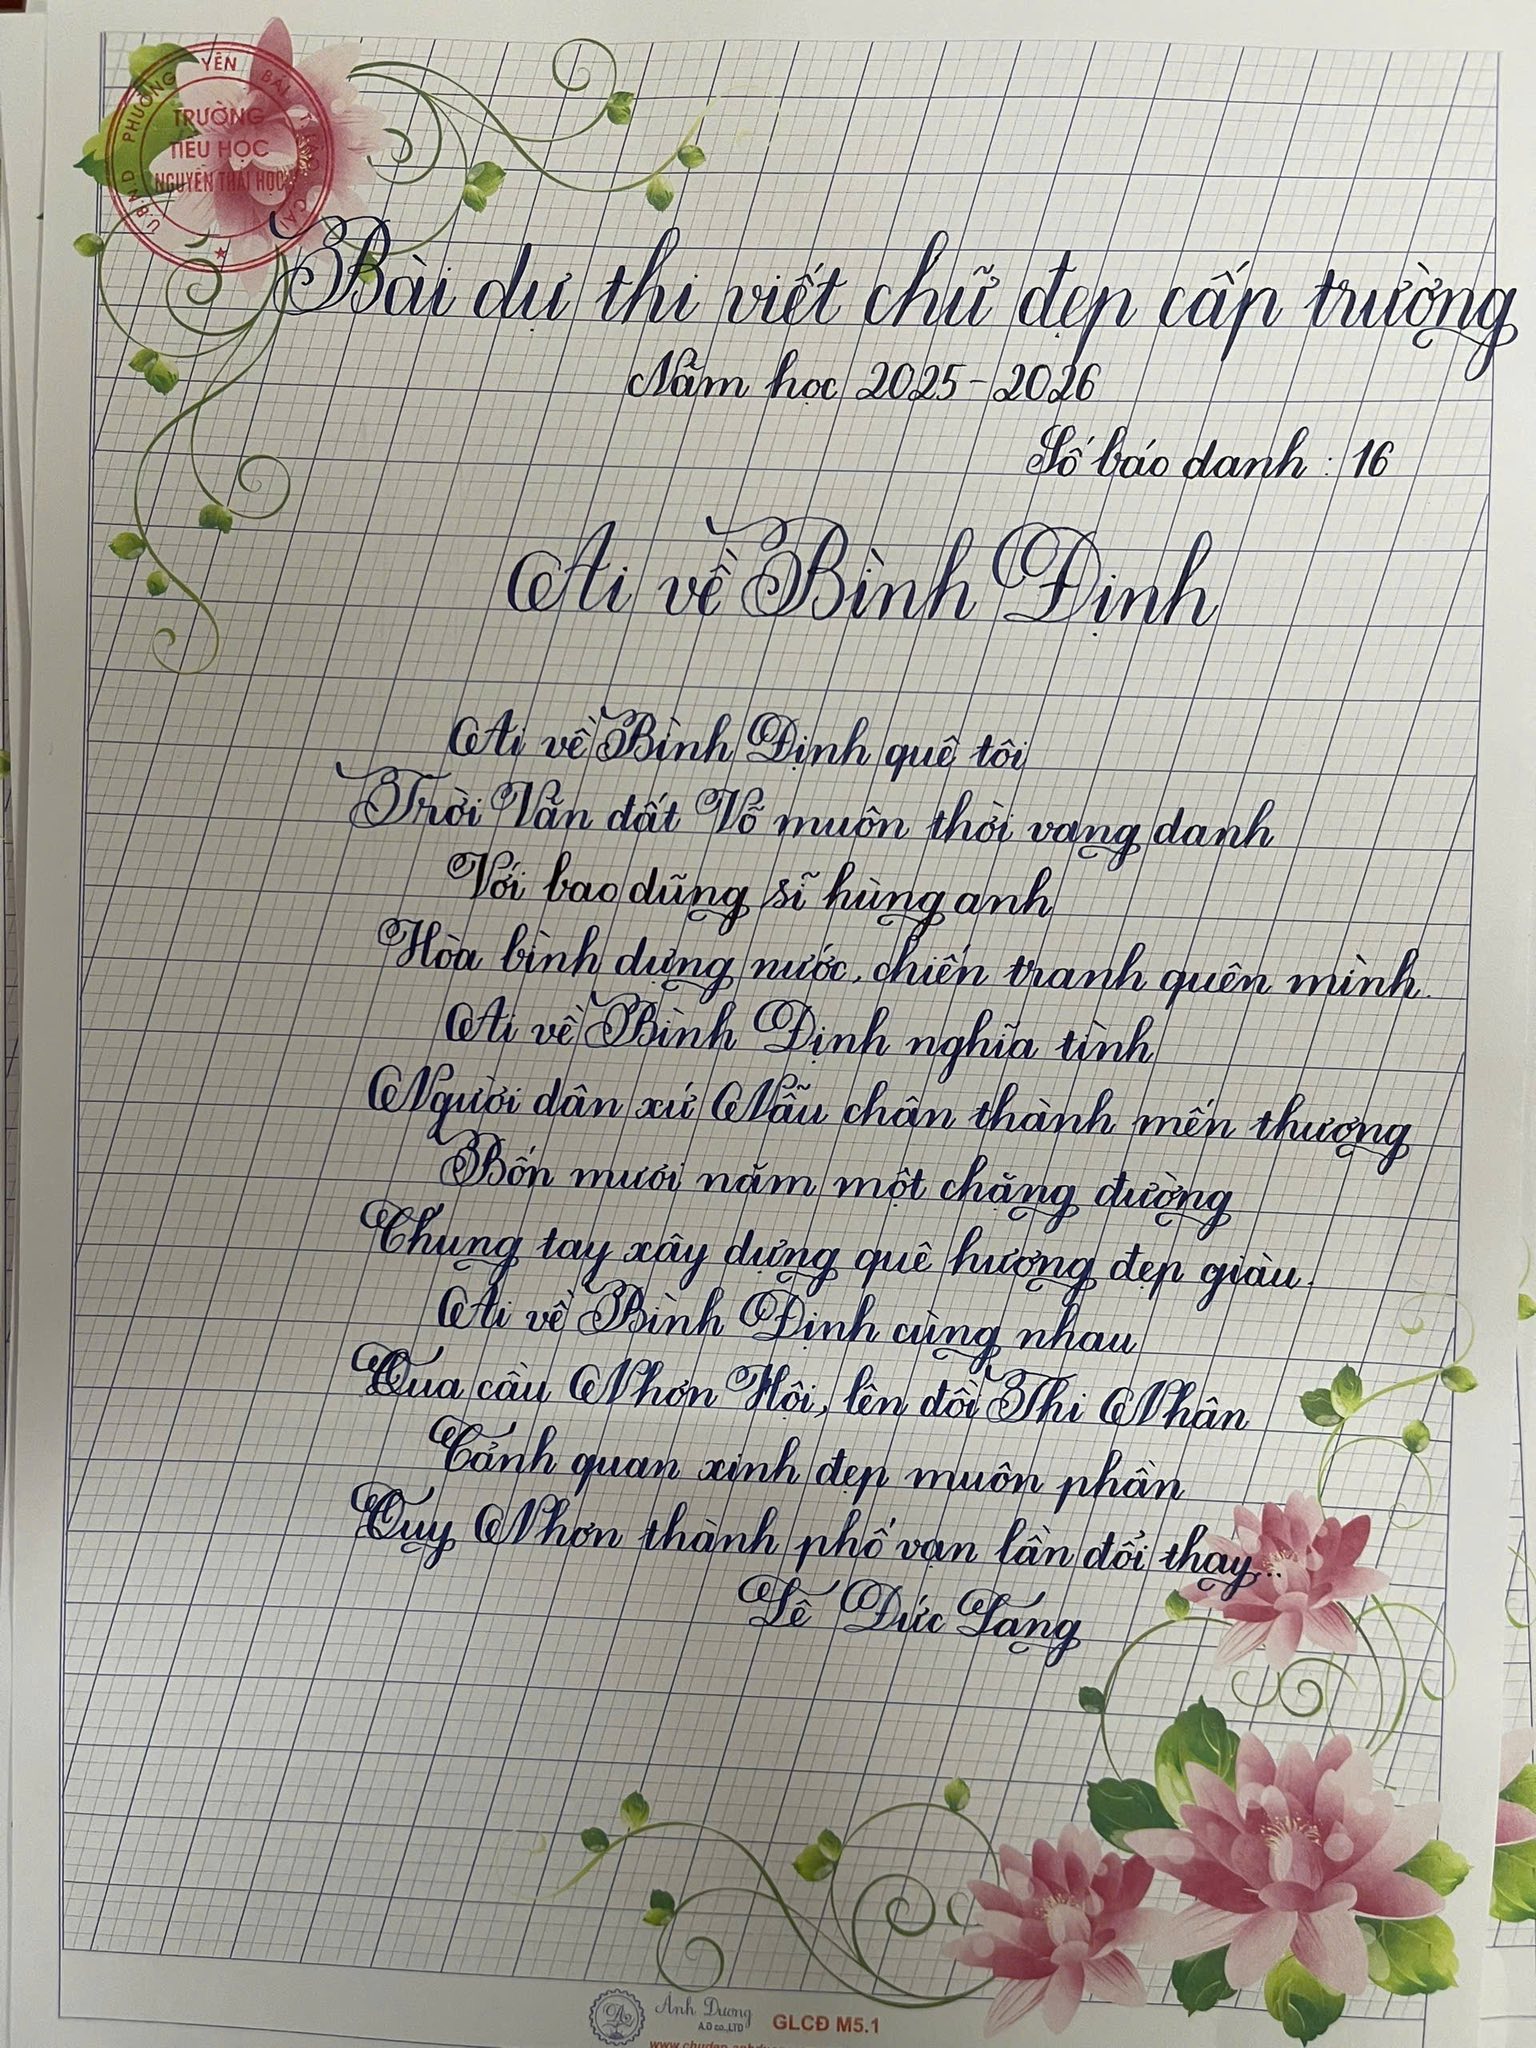 U.B.N.D PHƯỜNG YÊN BÁI T. LÀO CAI
TRƯỜNG
TIỂU HỌC
NGUYỄN THÁI HỌC
Bài dự thi viết chữ đẹp cấp trường
Năm học 2025-2026
Số báo danh: 16
Ai về Bình Định
Ai về Bình Định quê tôi
Trời Văn đất Võ muôn thời vang danh
Với bao dũng sĩ hùng anh
Hòa bình dựng nước, chiến tranh quên mình.
Ai về Bình Định nghĩa tình
Người dân xứ Nẫu chân thành mến thương
Bốn mươi năm một chặng đường
Chung tay xây dựng quê hương đẹp giàu.
Ai về Bình Định cùng nhau
Qua cầu Nhơn Hội, lên đồi Thi Nhân
Cảnh quan xinh đẹp muôn phần
Quy Nhơn thành phố vạn lần đổi thay...
Lê Đức Lang
Ánh Dương
A.D co.,LTD
GLCĐ M5.1